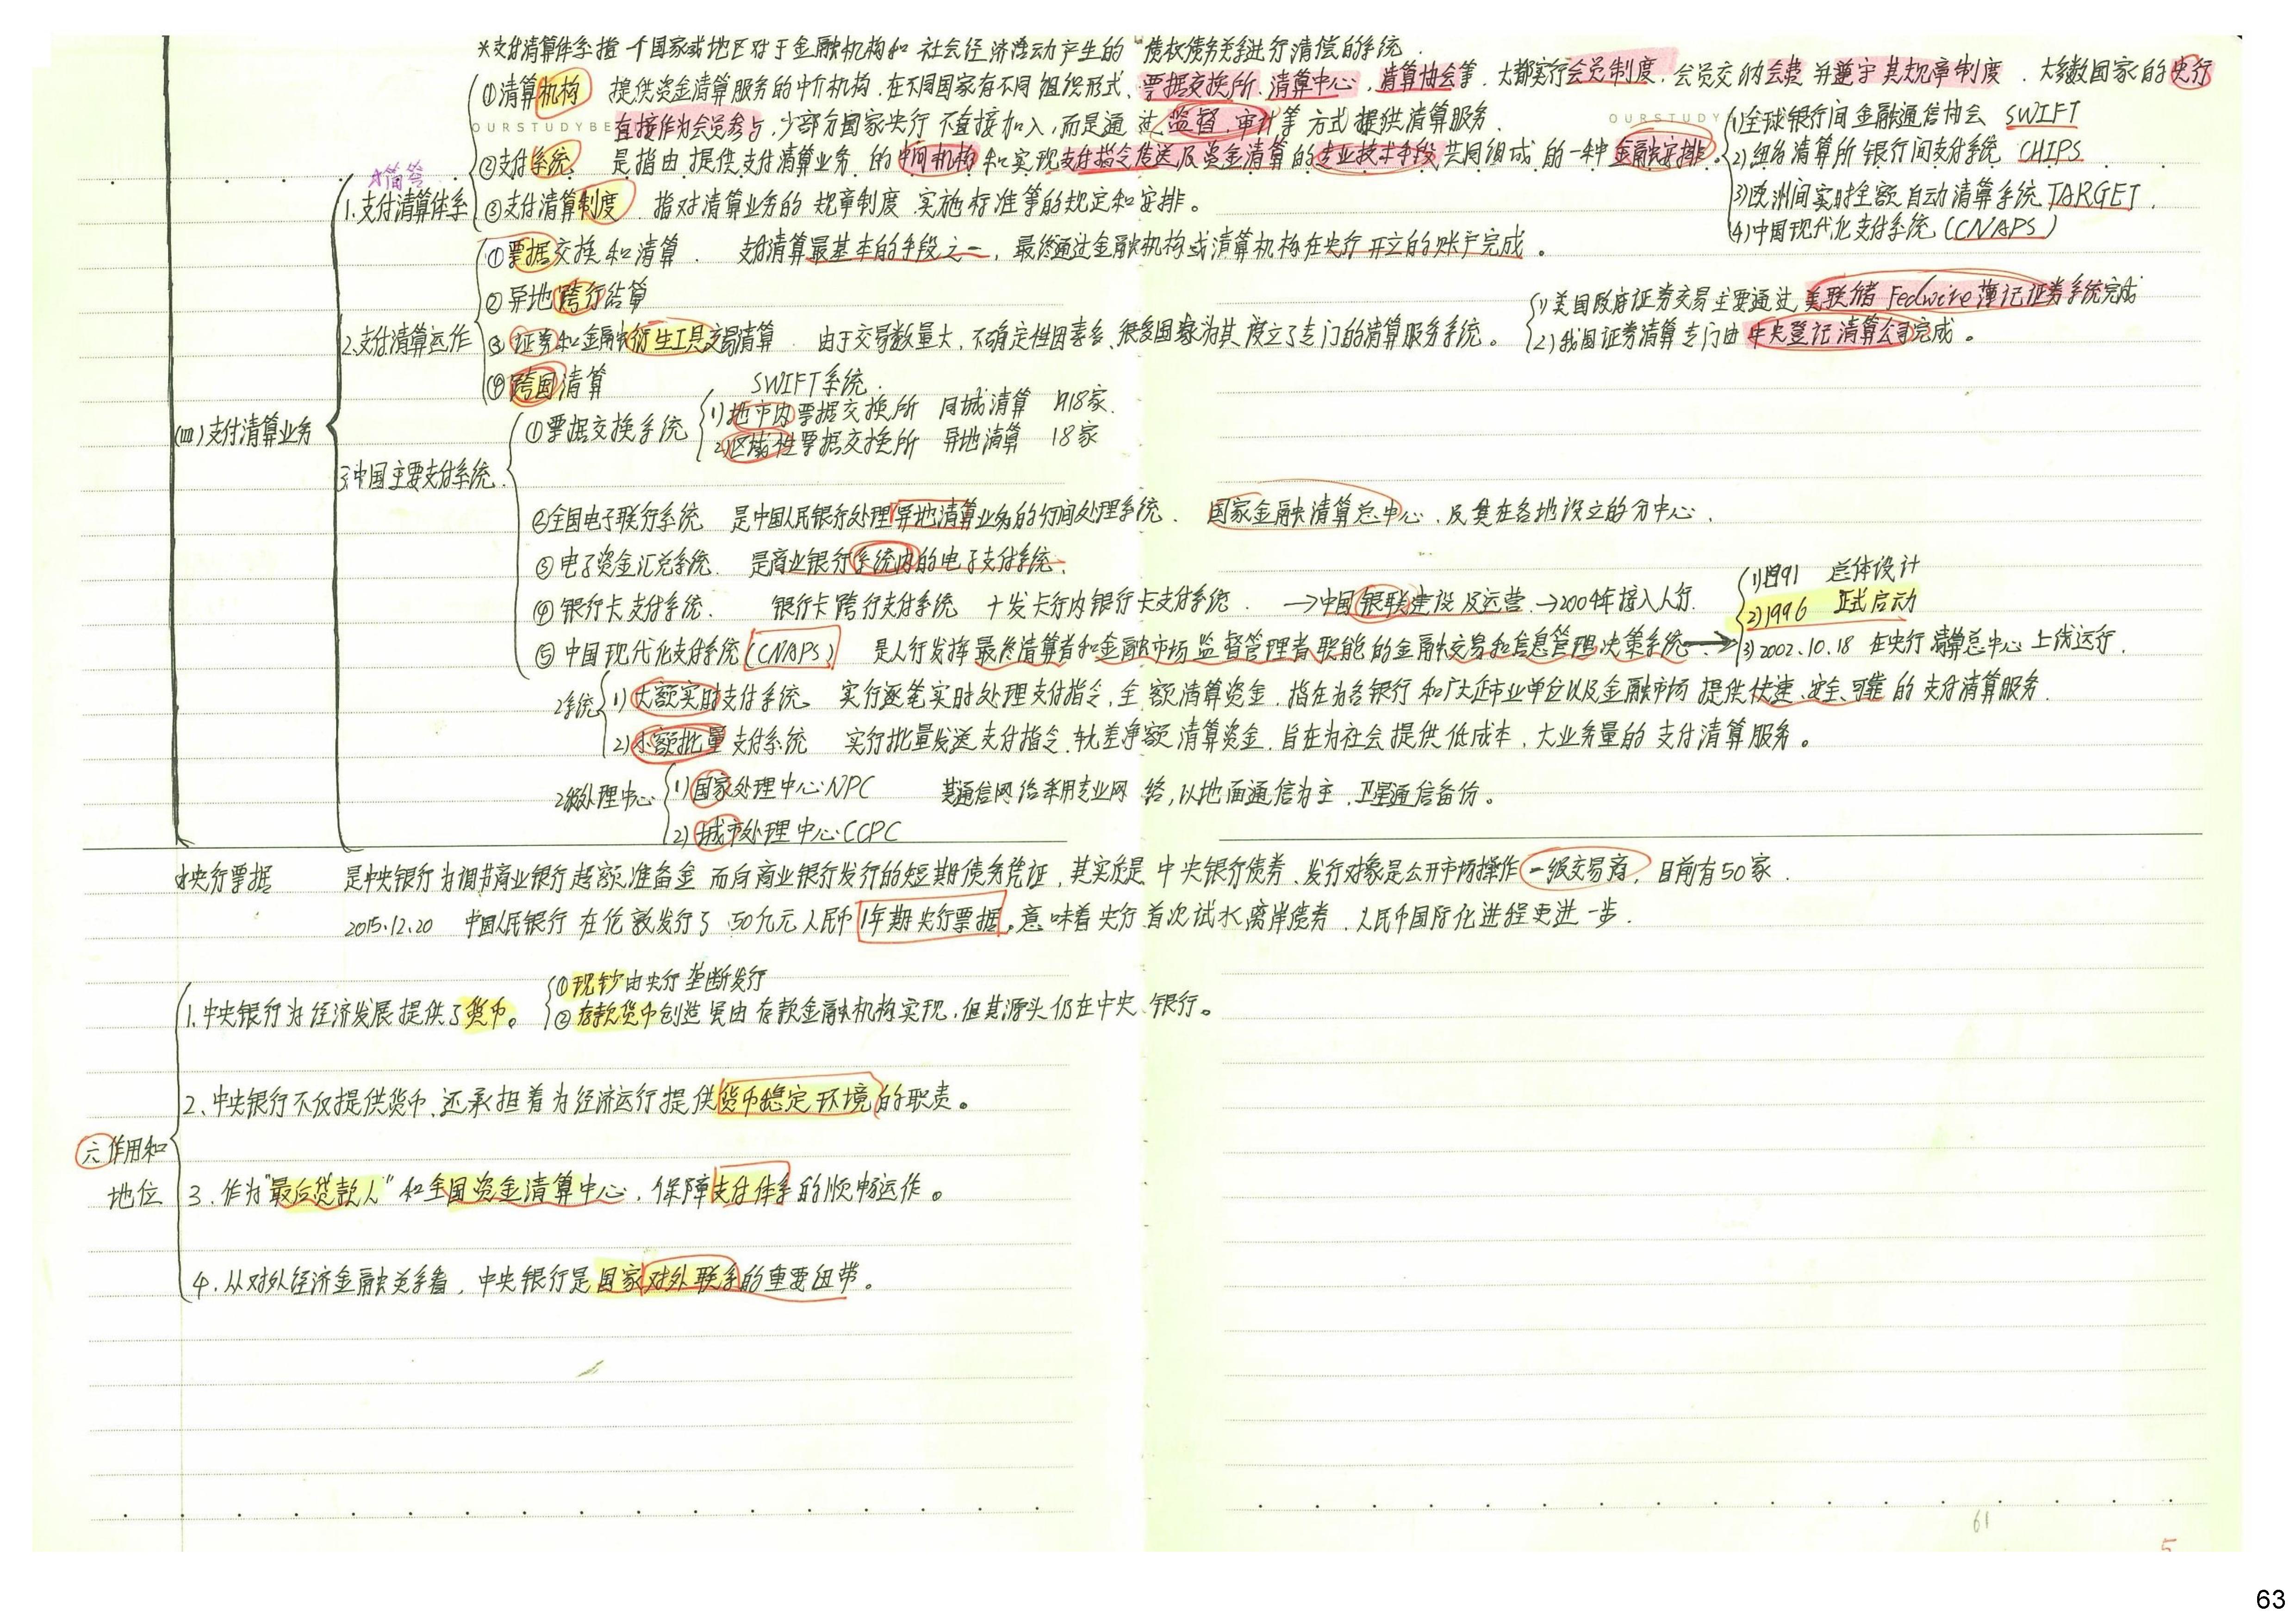 *支付清算体系指一个国家或地区对于金融机构和社会经济活动产生的债权债务关系进行清偿的系统.
①清算机构 提供资金清算服务的中介机构.在不同国家有不同组织形式、票据交换所、清算中心、清算协会等.大都实行会员制度.会员交纳会费并遵守其规章制度.大多数国家的央行
OURSTUDYBE
直接作为会员参与,少部分国家央行不直接加入,而是通过监督、审计等方式提供清算服务.
OURSTUDY
1)全球银行间金融通信协会 SWIFT
②支付系统. 是指由提供支付清算业务的中间机构和实现支付指令传送及资金清算的专业技术手段共同组成的一种金融安排.
2)纽约清算所银行间支付系统 CHIPS
☆简答
3)欧洲间实时全额自动清算系统 TARGET.
1.支付清算体系
③支付清算制度. 指对清算业务的规章制度、实施标准等的规定和安排。
4)中国现代化支付系统(CNAPS)
①票据交换和清算. 支付清算最基本的手段之一,最终通过金融机构或清算机构在央行开立的账户完成。
②异地跨行结算
1)美国政府证券交易主要通过美联储Fedwire簿记证券系统完成
2.支付清算运作
③证券和金融衍生工具交易清算. 由于交易数量大、不确定性因素多、很多国家为其设立了专门的清算服务系统。
2)我国证券清算专门由中央登记清算公司完成。
④跨国清算 SWIFT系统.
(四)支付清算业务
①票据交换系统
1)地市内票据交换所 同城清算 918家.
2)区域性票据交换所 异地清算 18家
3.中国主要支付系统.
②全国电子联行系统 是中国人民银行处理异地清算业务的行间处理系统. 国家金融清算总中心、及其在各地设立的分中心.
③电子资金汇兑系统. 是商业银行系统内的电子支付系统.
④银行卡支付系统. 银行卡跨行支付系统 + 发卡行内银行卡支付系统. →中国银联建设及运营.→2004年接入人行.
1)1991 总体设计
2)1996 正式启动
⑤中国现代化支付系统(CNAPS) 是人行发挥最终清算者和金融市场监督管理者职能的金融交易和信息管理决策系统→
3)2002.10.18 在央行清算总中心上线运行.
2系统
1)大额实时支付系统 实行逐笔实时处理支付指令,全额清算资金.指在为各银行和广大企业单位以及金融市场提供快速、安全、可靠的支付清算服务.
2)小额批量支付系统 实行批量发送支付指令.轧差净额清算资金.旨在为社会提供低成本、大业务量的支付清算服务。
2级处理中心
1)国家处理中心:NPC 其通信网络采用专业网络,以地面通信为主.卫星通信备份。
2)城市处理中心:CCPC
中央行票据 是中央银行为调节商业银行超额准备金而向商业银行发行的短期债务凭证,其实质是中央银行债券、发行对象是公开市场操作一级交易商,目前有50家.
2015.12.20 中国人民银行在伦敦发行了50亿元人民币1年期央行票据。意味着央行首次试水离岸债券.人民币国际化进程更进一步.
1.中央银行为经济发展提供了货币。
①现钞由央行垄断发行
②存款货币创造虽由存款金融机构实现,但其源头仍在中央银行。
2、中央银行不仅提供货币、还承担着为经济运行提供货币稳定环境的职责。
六作用和
地位
3.作为“最后贷款人”和全国资金清算中心,保障支付体系的顺畅运作。
4.从对外经济金融关系看,中央银行是国家对外联系的重要纽带。
61
5
63